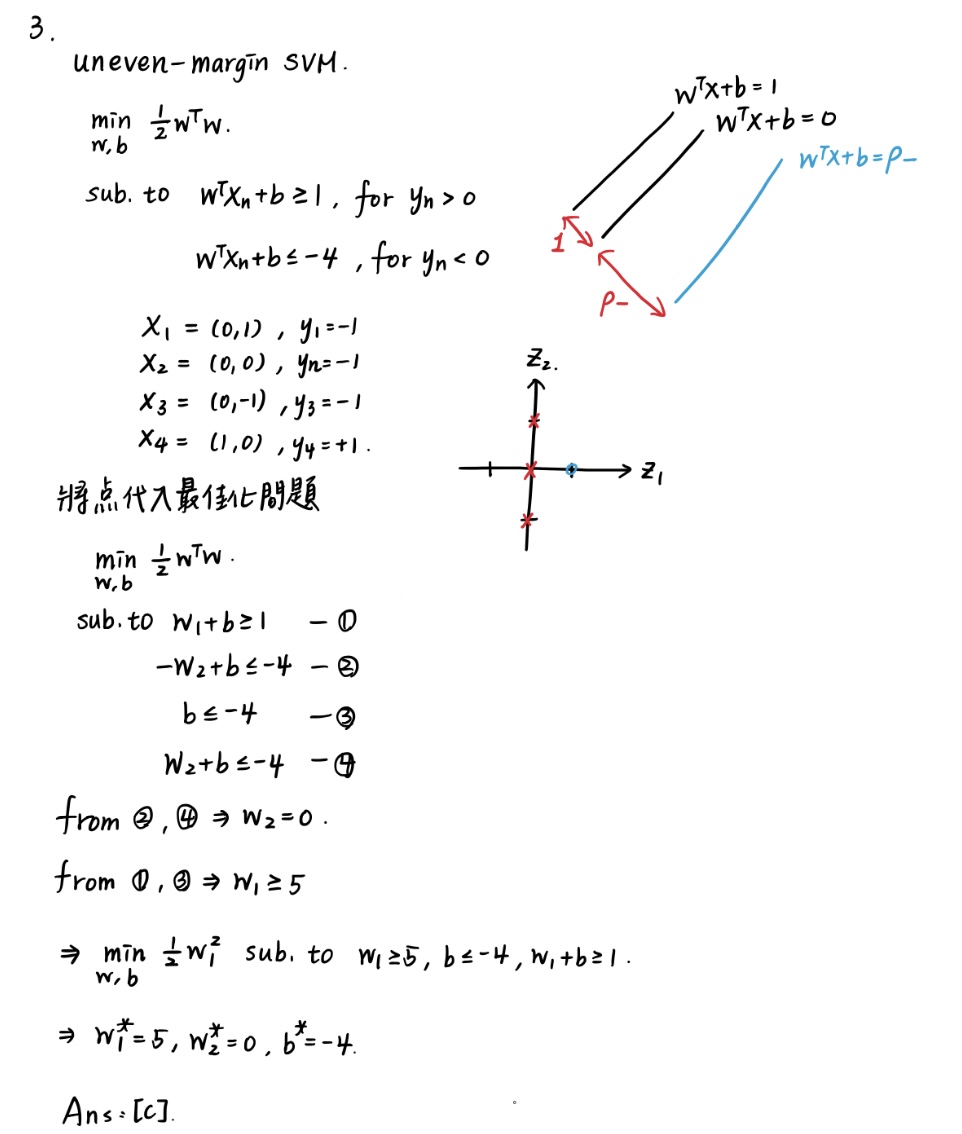 3.
uneven-margin SVM.
min w,b ½ wᵀw.
sub. to wᵀxₙ+b ≥ 1, for yₙ > 0
wᵀxₙ+b ≤ -4, for yₙ < 0
wᵀx+b = 1
wᵀx+b = 0
wᵀx+b = ρ-
1
ρ-
x₁ = (0,1), y₁=-1
x₂ = (0,0), yₙ=-1
x₃ = (0,-1), y₃=-1
x₄ = (1,0), y₄=+1.
z₂.
z₁
將点代入最佳化問題
min w,b ½ wᵀw.
sub. to w₁+b ≥ 1 - ①
-w₂+b ≤ -4 - ②
b ≤ -4 - ③
w₂+b ≤ -4 - ④
from ②, ④ ⇒ w₂=0.
from ①, ③ ⇒ w₁ ≥ 5
⇒ min w,b ½ w₁² sub. to w₁≥5, b≤-4, w₁+b≥1.
⇒ w₁*=5, w₂*=0, b*=-4.
Ans: [c].